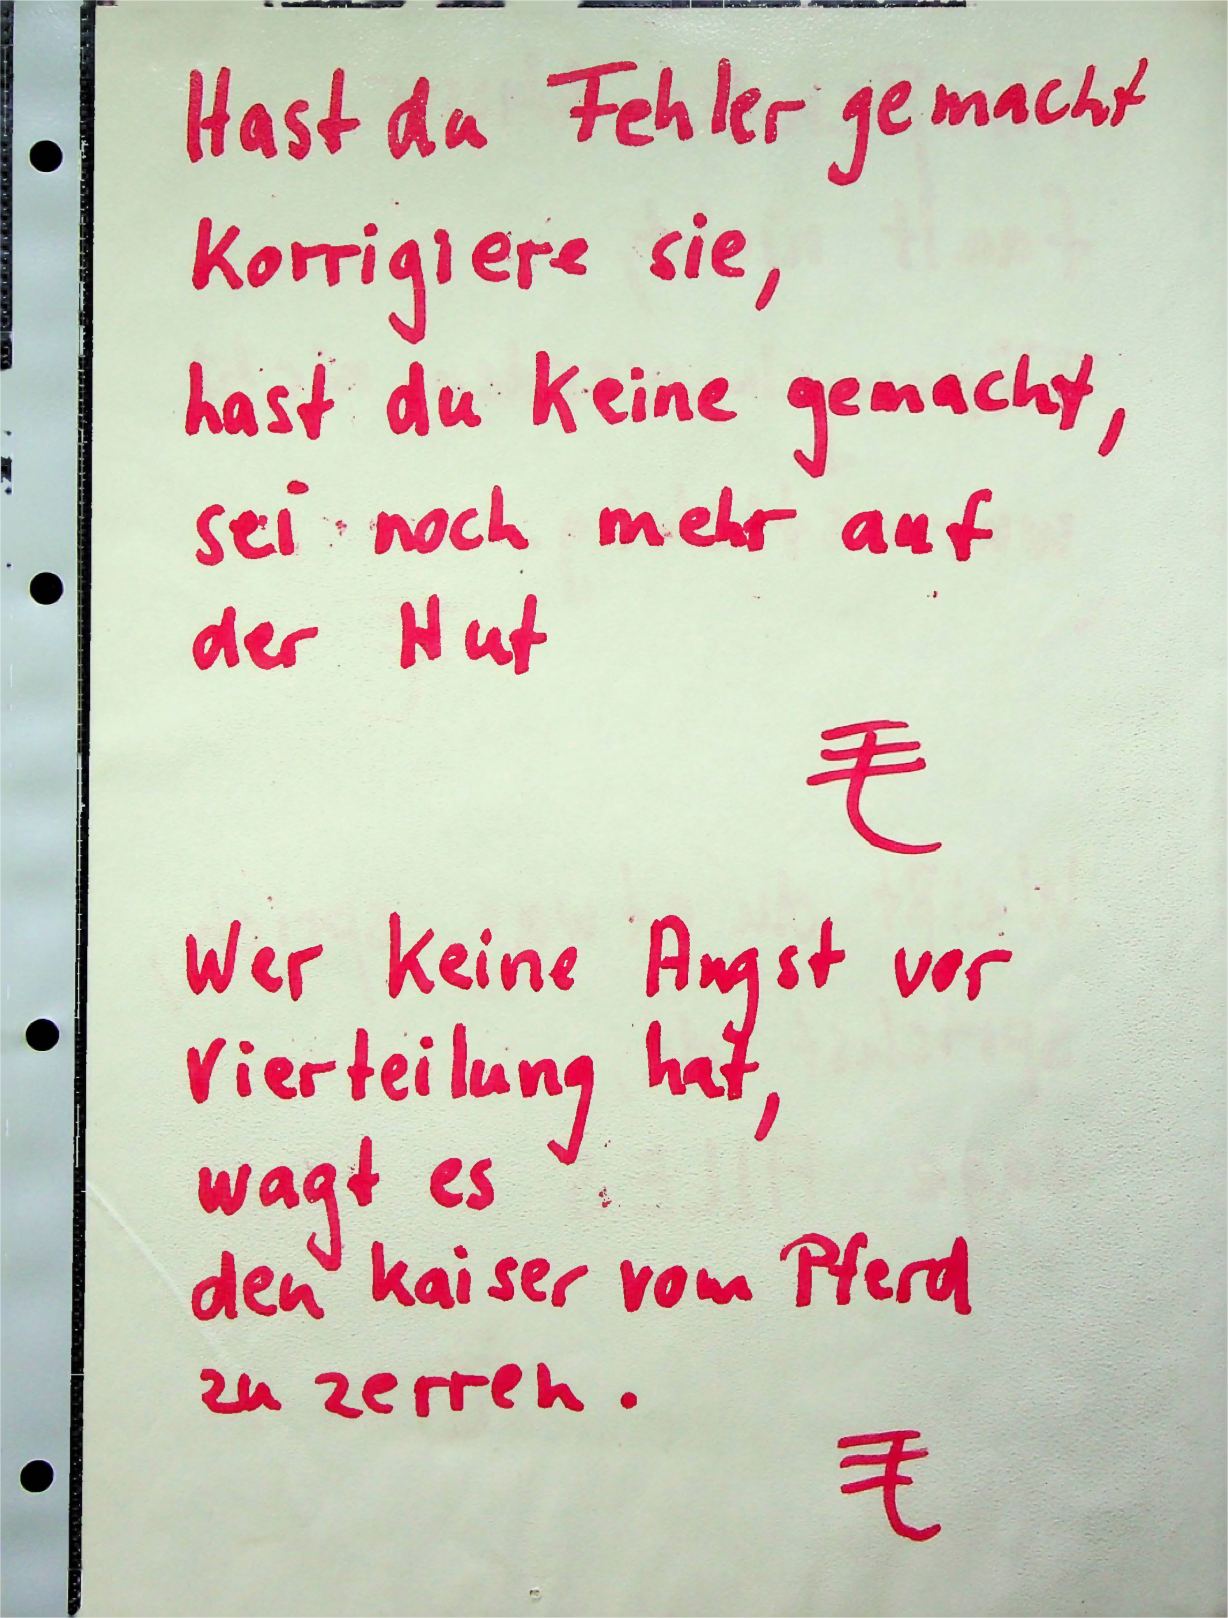 Hast du Fehler gemacht
Korrigiere sie,
hast du keine gemacht,
sei noch mehr auf
der Hut
Wer keine Angst vor
Vierteilung hat,
wagt es
den Kaiser vom Pferd
zu zerren.